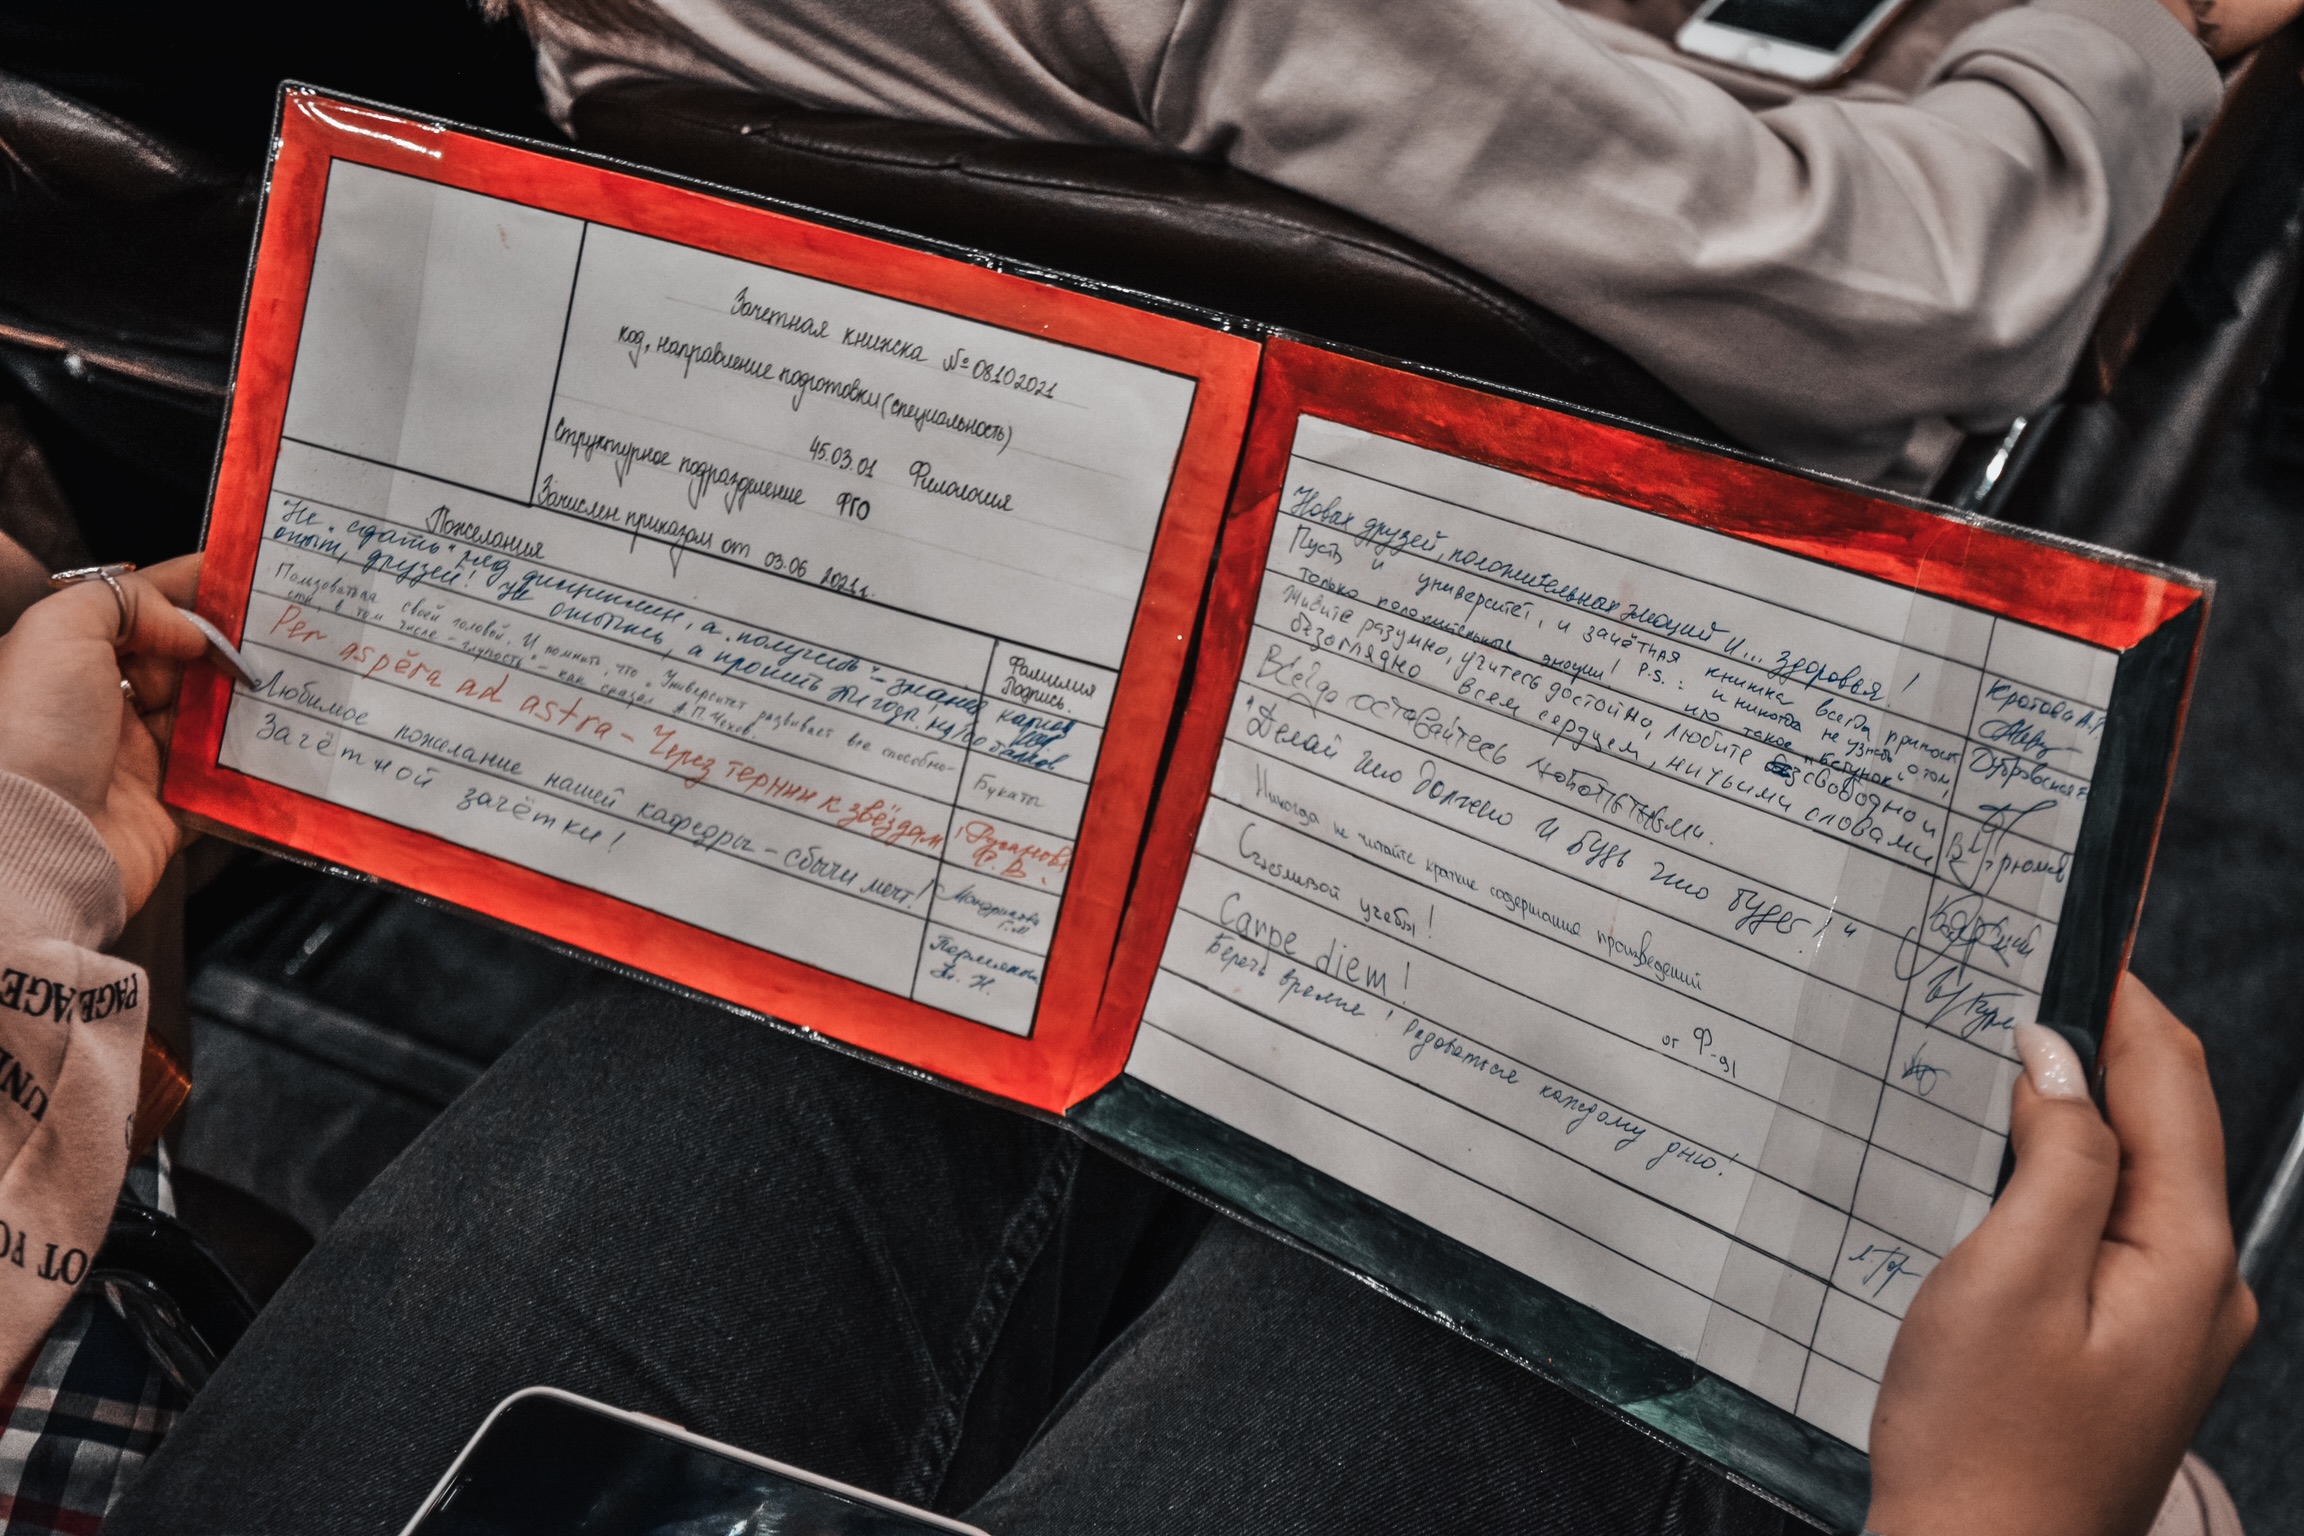 Зачетная книжка № 08102021
код, направление подготовки (специальность)
45.03.01 Филология
Структурное подразделение ФГО
Зачислен приказом от 03.06 2021г.
Пожелания
Фамилия
Подпись.
"Не "сдать" ряд дисциплин, а "получить" – знания,
опыт, друзей! Не отбыть, а прожить эти годы. на 100 баллов
Пользоваться своей головой. И помнить, что "Университет развивает все способно-
сти, в том числе – глупость" – как сказал А.П.Чехов.
Букаты
Per aspera ad astra – Через тернии к звёздам!
Ф. В.
Любимое пожелание нашей кафедры – сбычи мечт!
Г.М
Зачётной зачётки!
Новых друзей, положительных эмоций и... здоровья!
Кротова А.Г.
Пусть и университет, и зачётная книжка всегда приносят
только положительные эмоции! P.S.: и никогда не узнать о том,
что такое "бегунок".
Живите разумно, учитесь достойно, любите свободно и
безоглядно всем сердцем, ничьими словами
Всегда оставайтесь любопытными.
"Делай что должно и будь что будет!"
Никогда не читайте краткие содержания произведений
Счастливой учебы!
от Ф-91
Carpe diem!
Беречь время! Радоваться каждому дню!
PAGE
PAGE
UN
OT FO